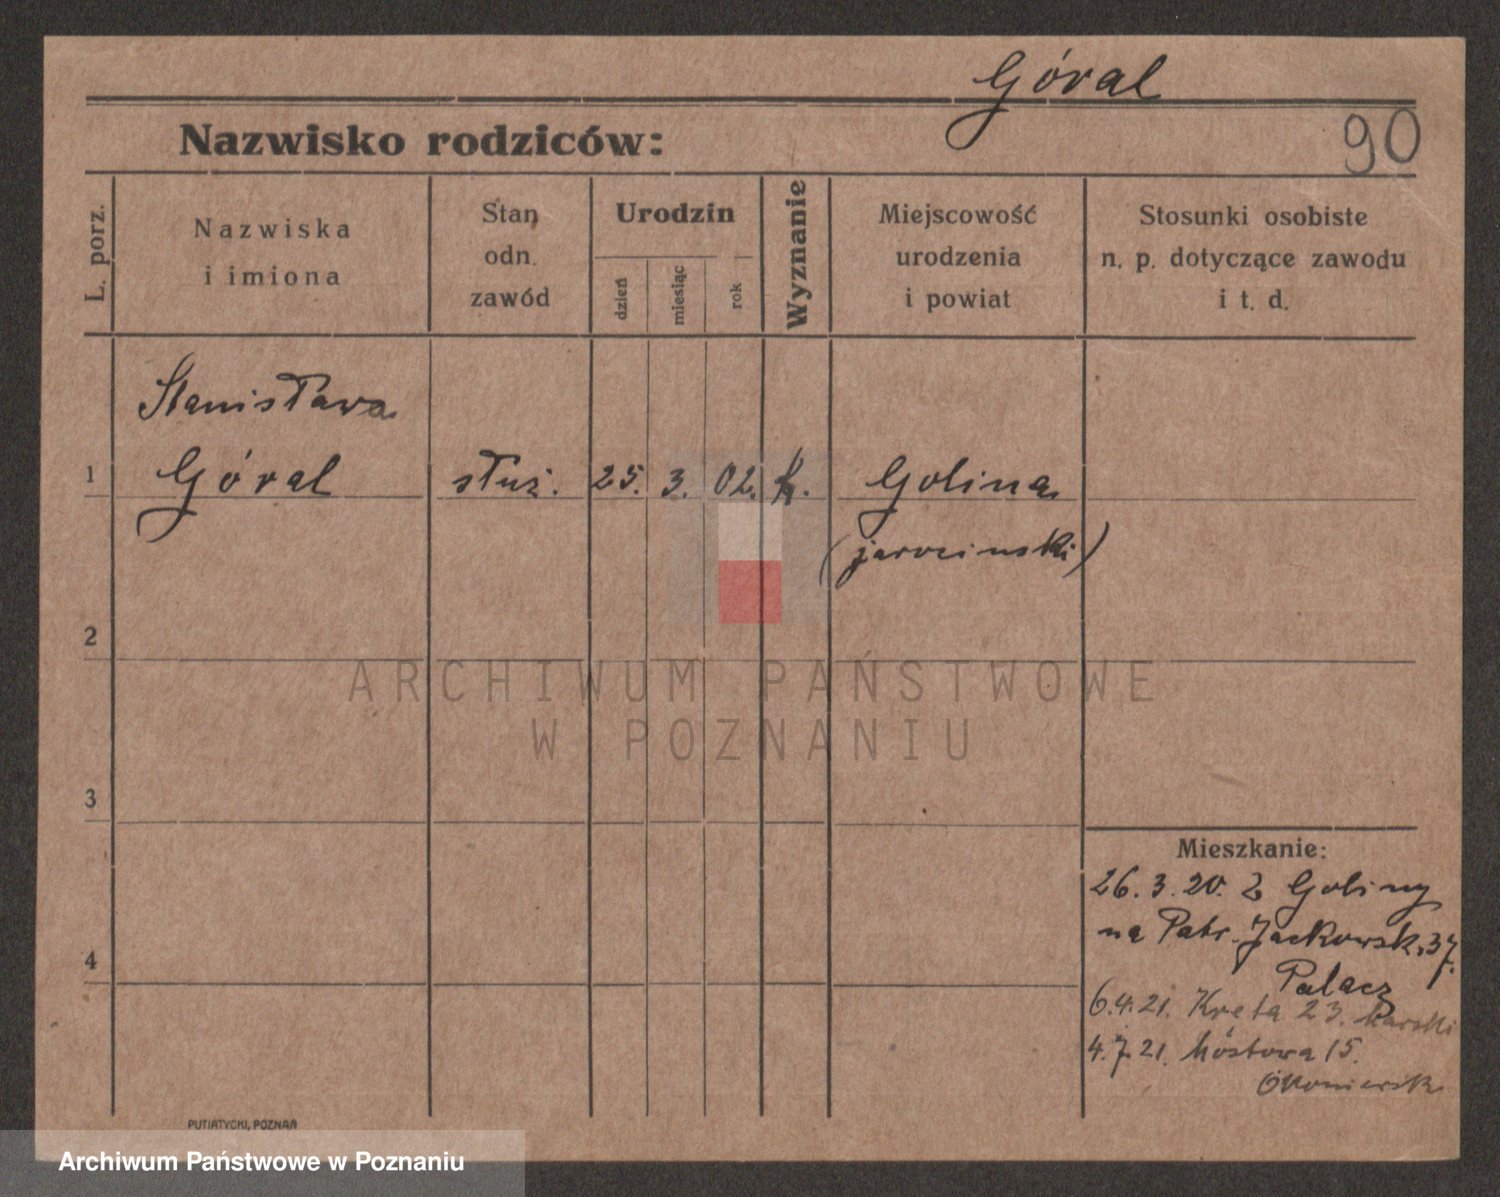 Góral
90
Nazwisko rodziców:
L. porz.
Nazwiska
i imiona
Stan
odn.
zawód
Urodzin
dzień
miesiąc
rok
Wyznanie
Miejscowość
urodzenia
i powiat
Stosunki osobiste
n. p. dotyczące zawodu
i t. d.
Stanisława
1 Góral służ. 25. 3. 02. k. Golina
(jarocinski)
2
3
4
Mieszkanie:
26. 3. 20. Z Goliny
na Patr. Jackowsk. 37.
Palacz
6.4.21. Kręta 23. Karski
4.7.21. Móstowa 15.
ARCHIWUM PAŃSTWOWE
W POZNANIU
PUTIATYCKI, POZNAŃ
Archiwum Państwowe w Poznaniu